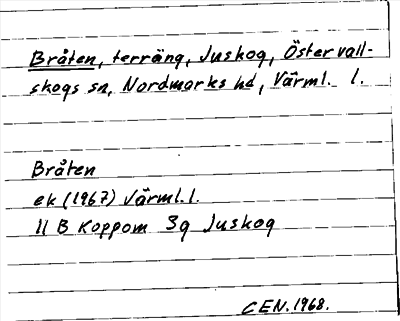 Bråten, terräng, Juskog, Östervall-
skogs sn, Nordmarks hd, Värml. l.
Bråten
ek (1967) Värml. l.
11 B Koppom 3g Juskog
CEN. 1968.